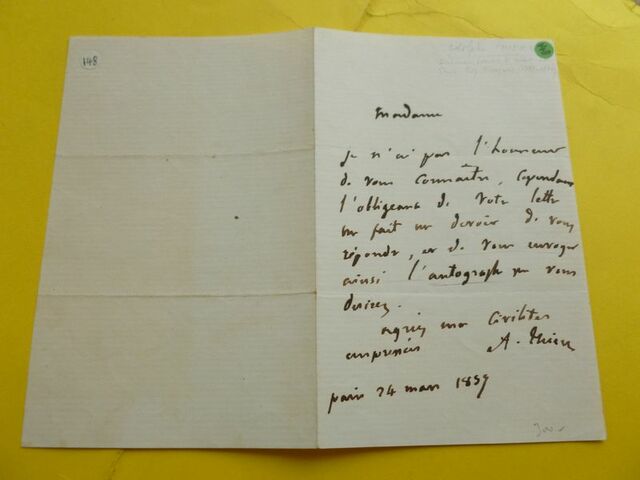 148
Adolphe
Madame
Je n'ai pas l'honneur
de vous connaître, cependant
l'obligeance de votre lettre
me fait un devoir de vous
répondre, et de vous envoyer
ainsi l'autographe que vous
desirez.
agréez mes civilités
empressées A. Thiers
paris 24 mars 1859
300